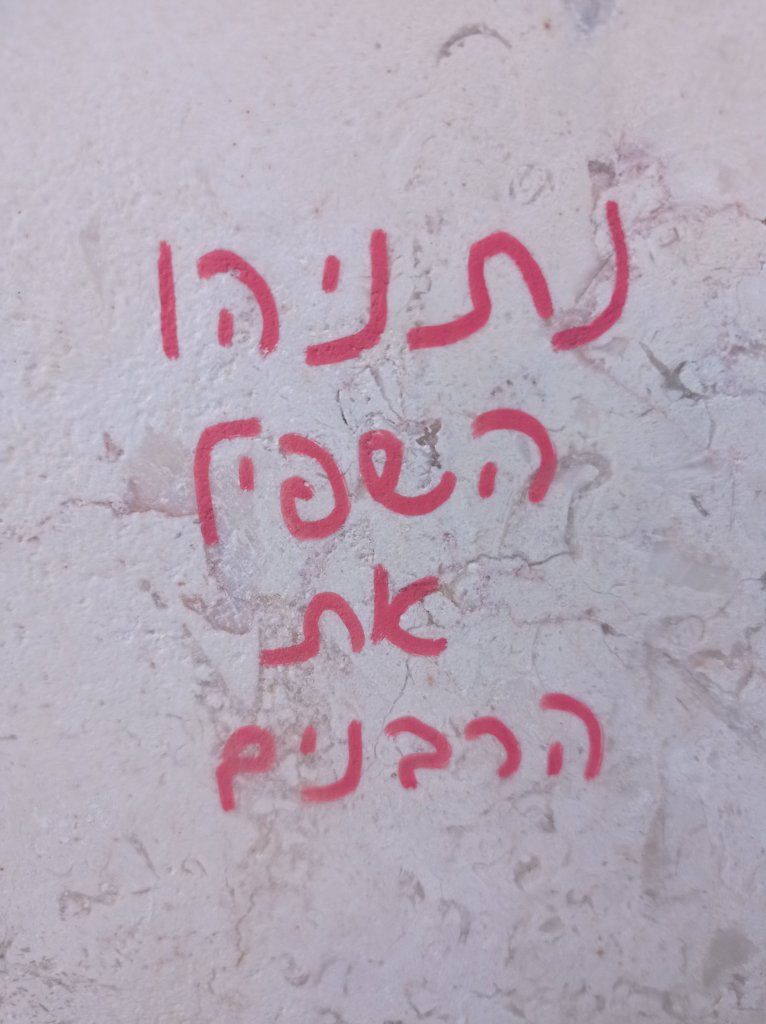 נתניהו
השפיל
את
הרבנים